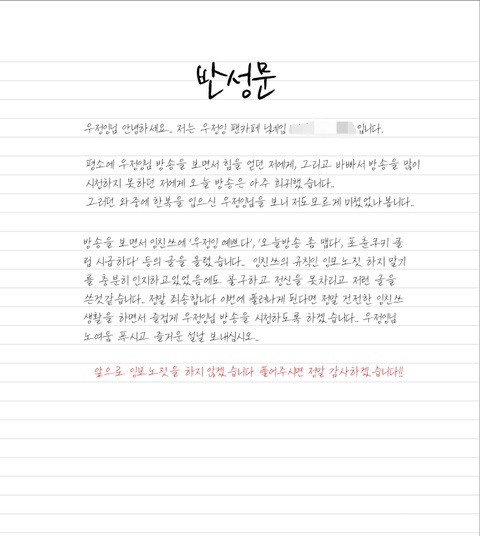 반성문
우정잉님 안녕하세요.. 저는 우정잉 팬카페 닉네임 입니다.
평소에 우정잉님 방송을 보면서 힘을 얻던 저에게, 그리고 바빠서 방송을 많이
시청하지 못하던 저에게 오늘 방송은 아주 희귀했습니다..
그러던 와중에 한복을 입으신 우정잉님을 보니 저도모르게 미쳤었나봅니다..
방송을 보면서 잉친쓰에 '우정잉 예쁘다', '오늘방송 좀 맵다', 포춘쿠키 풀
럽 시급하다' 등의 글을 올렸습니다.. 잉친쓰의 규칙인 잉모노짓 하지 말기
를 충분히 인지하고있었음에도 불구하고 정신을 못차리고 저런 글을
쓴것같습니다.. 정말 죄송합니다 이번에 풀려나게 된다면 정말 건전한 잉친쓰
생활을 하면서 즐겁게 우정잉님 방송을 시청하도록 하겠습니다.. 우정잉님
노여움 푸시고 즐거운 설날 보내십시오..
앞으로 잉모노짓을 하지 않겠습니다 풀어주시면 정말 감사하겠습니다!!